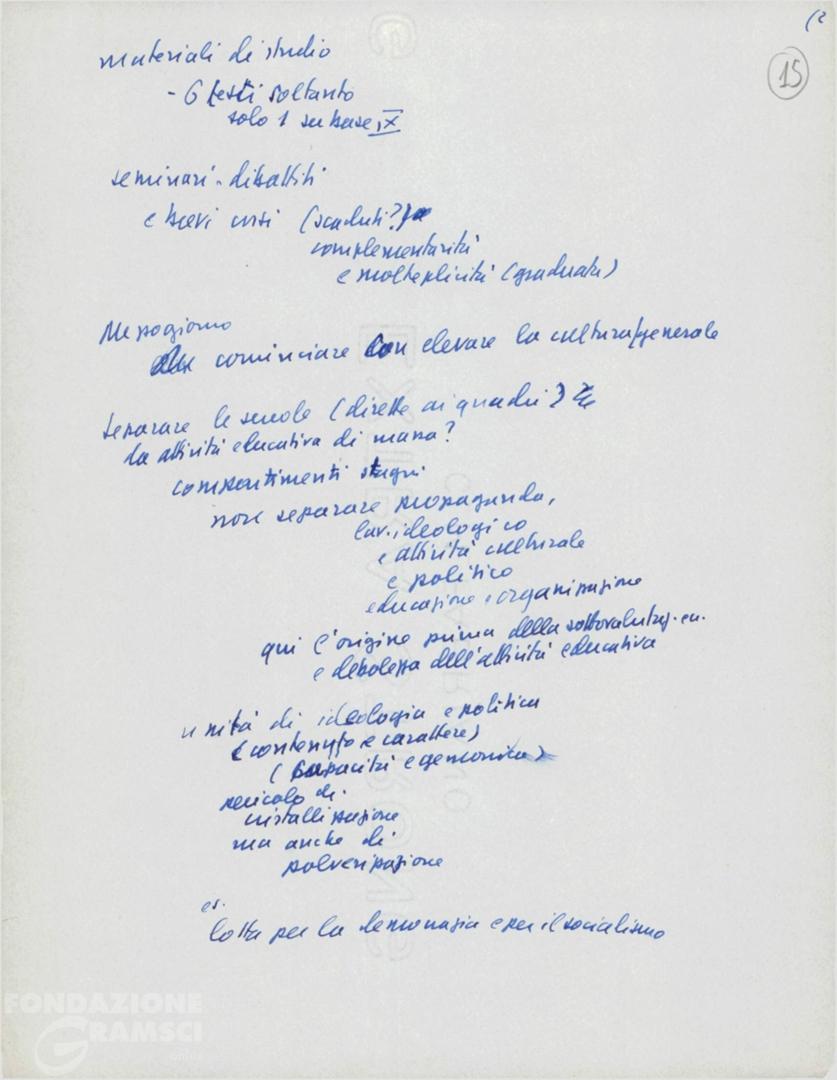 (2
15
materiali di studio
- 6 testi soltanto
solo 1 su base IX
seminari - dibattiti
e brevi corsi (scaduti?)
complementarità
e molteplicità (graduata)
Mezzogiorno
cominciare con elevare la cultura generale
separare le scuole (dirette ai quadri)
da attività educativa di massa?
compartimenti stagni
non separare propaganda,
lav. ideologico
e attività culturale
e politico
educazione e organizzazione
qui l'origine prima della sottovalutaz.
e debolezza dell'attività educativa
unità di ideologia e politica
(contenuto e carattere)
(capacità egemonica)
pericolo di
cristallizzazione
ma anche di
polverizzazione
es.
lotta per la democrazia e per il socialismo
FONDAZIONE
GRAMSCI